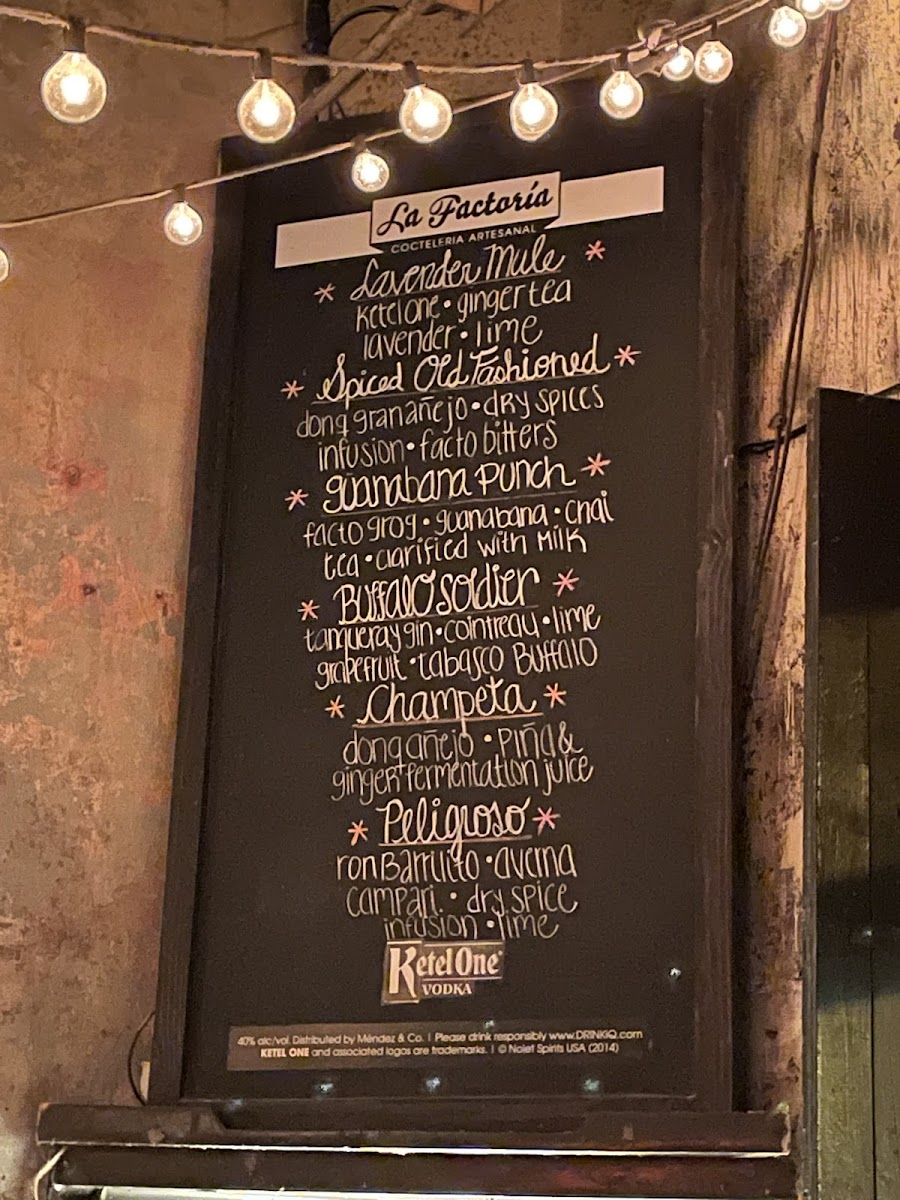 La Factoría
COCTELERIA ARTESANAL
Lavender Mule
Ketel one • ginger tea
lavender • lime
Spiced Old Fashioned
donq gran añejo • dry spices
infusion • facto bitters
guanabana Punch
facto grog • guanabana • chai
tea • clarified with Milk
Buffalo Soldier
tanqueray gin • cointreau • lime
grapefruit • tabasco Buffalo
Champeta
donq añejo • piña &
ginger fermentation juice
Peligroso
ron Barrilito • averna
campari • dry spice
infusion • lime
Ketel One
VODKA
40% alc/vol. Distributed by Méndez & Co. | Please drink responsibly www.DRINKiQ.com
KETEL ONE and associated logos are trademarks. | © Nolet Spirits USA (2014)